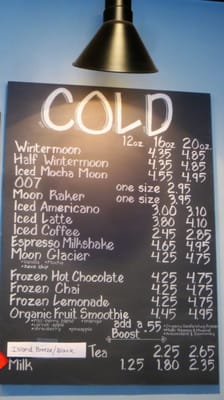 COLD
12oz 16oz 20oz.
Wintermoon 4.35 4.85
Half Wintermoon 4.35 4.85
Iced Mocha Moon 4.55 4.95
007 one size 2.95
Moon Raker one size 3.95
Iced Americano 3.00 3.10
Iced Latte 3.80 4.10
Iced Coffee 2.45 2.85
Espresso Milkshake 4.65 4.95
Moon Glacier 4.25 4.75
Frozen Hot Chocolate 4.25 4.75
Frozen Chai 4.25 4.75
Frozen Lemonade 4.25 4.75
Organic Fruit Smoothie 4.45 4.95
add a .55
Boost
Island Breeze/Black Tea 2.25 2.65
Milk 1.25 1.80 2.35